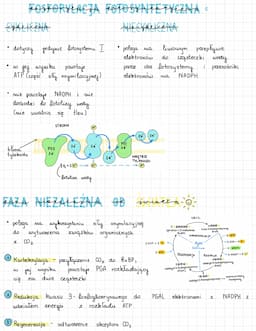 FOSFORYLACJA FOTOSYNTETYCZNA :
CYKLICZNA
NIECYKLICZNA
• dotyczy jedynie fotosystemu I
• w jej wyniku powstaje
ATP (część siły asymilacyjnej)
• nie powstaje NADPH i nie
dochodzi do fotolizy wody
(nie uwalnia się tlen)
• polega na liniowym przepływie
elektronów do cząsteczki wody
przez dwa fotosystemy i przenośniki
elektronów na NADPH
STROMA
fotoliza wody
FAZA NIEZALEŻNA OD światła
• polega na wykorzystaniu siły asymilacyjnej
do wytworzenia związków organicznych
z CO₂
① Karboksylacja - przyłączenie CO₂ do RuBP,
w jej wyniku powstaje PGA rozkładający
się na dwie cząsteczki
② Redukcja kwasu 3-fosfoglicerynowego do PGAL elektronami z NADPH z
udziałem energii z rozkładu ATP
③ Regeneracja - odtworzenie akceptora CO₂